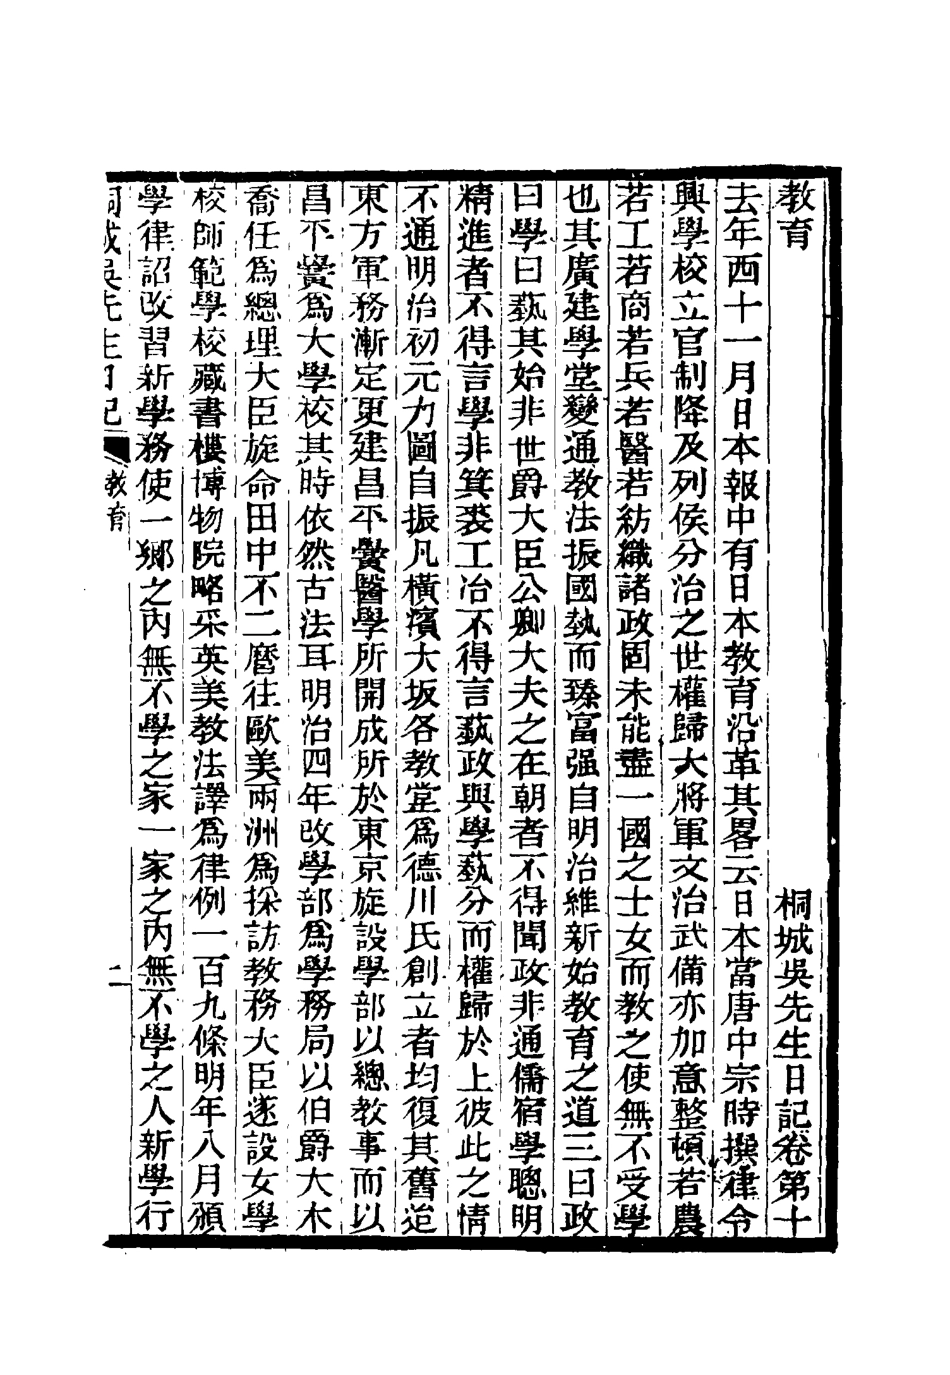 教育　桐城吳先生日記卷第十
去年西十一月日本報中有日本教育沿革其畧云日本當唐中宗時撰律令
興學校立官制降及列侯分治之世權歸大將軍文治武備亦加意整頓若農
若工若商若兵若醫若紡織諸政固未能盡一國之士女而教之使無不受學
也其廣建學堂變通教法振國埶而臻富强自明治維新始教育之道三曰政
曰學曰蓺其始非世爵大臣公卿大夫之在朝者不得聞政非通儒宿學聰明
精進者不得言學非箕裘工冶不得言蓺政與學蓺分而權歸於上彼此之情
不通明治初元力圖自振凡橫濱大坂各教堂爲德川氏創立者均復其舊迨
東方軍務漸定更建昌平黌醫學所開成所於東京旋設學部以總教事而以
昌平黌爲大學校其時依然古法耳明治四年改學部爲學務局以伯爵大木
喬任爲總理大臣旋命田中不二麿往歐美兩洲爲採訪教務大臣遂設女學
校師範學校藏書樓博物院略采英美教法譯爲律例一百九條明年八月頒
學律詔改習新學務使一鄉之內無不學之家一家之內無不學之人新學行
桐城吳先生日記　教育　二